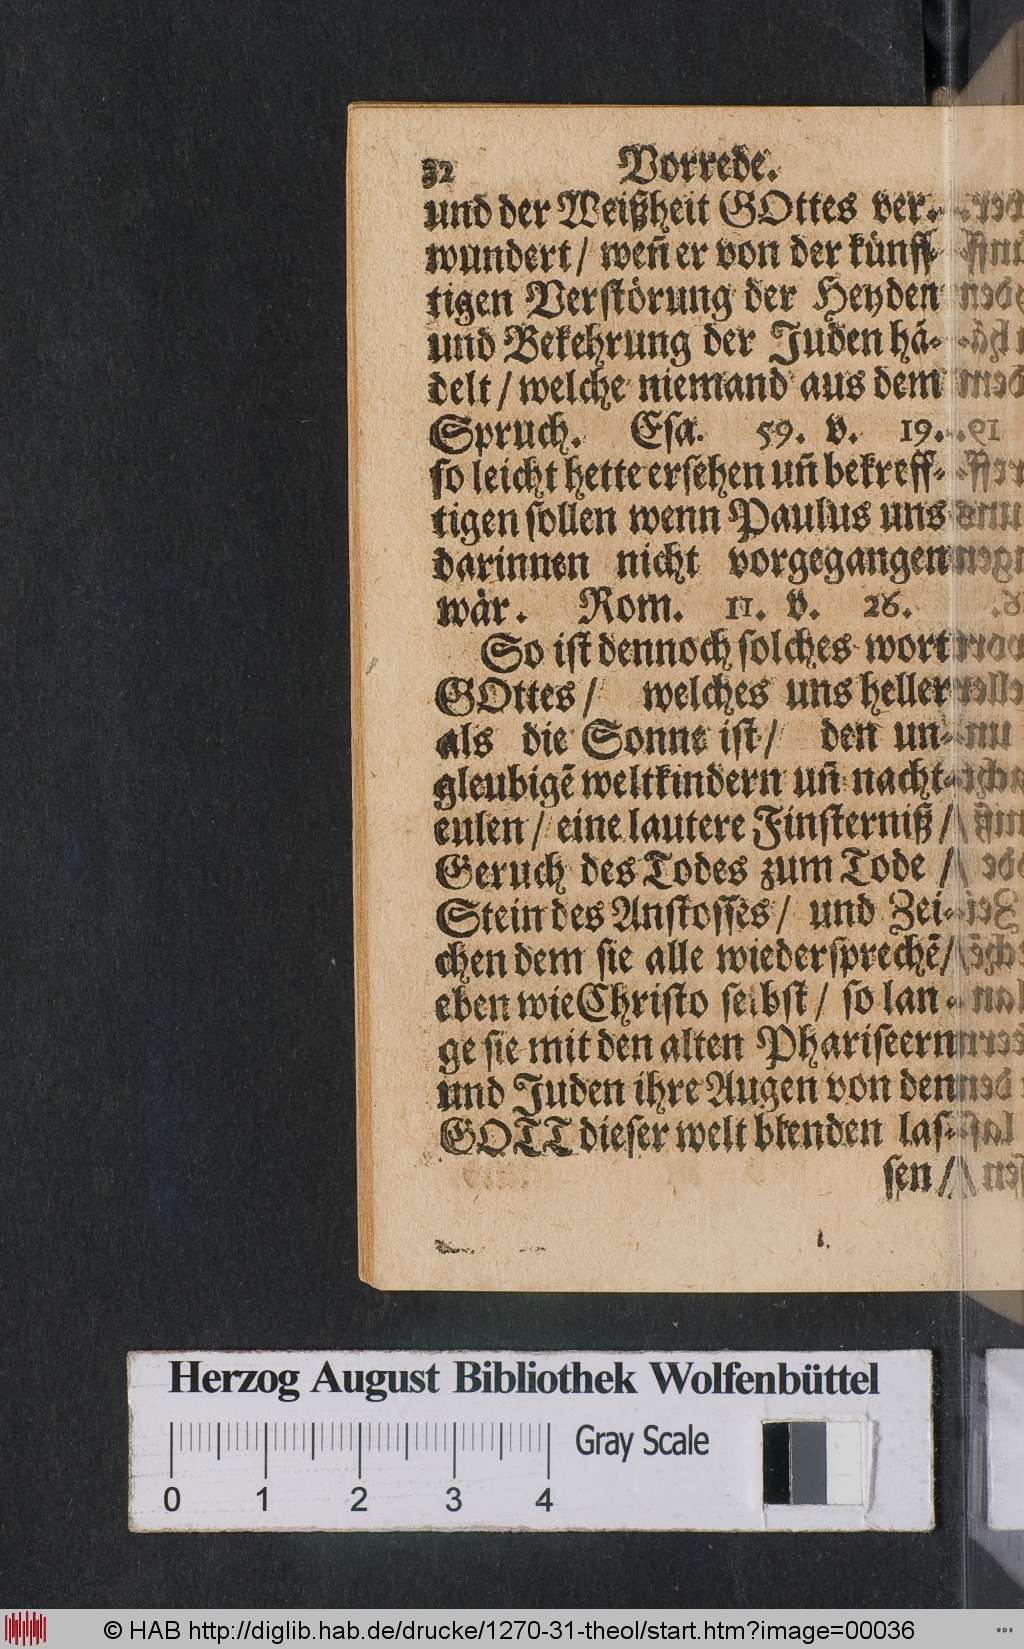 32 Vorrede.
und der Weißheit GOttes ver-
wundert / weñ er von der künff-
tigen Verstörung der Heyden
und Bekehrung der Juden hā-
delt / welche niemand aus dem
Spruch. Esa. 59. v. 19.
so leicht hette ersehen uñ bekreff-
tigen sollen wenn Paulus uns
darinnen nicht vorgegangen
wär. Rom. 11. v. 26.
So ist dennoch solches wort
GOttes / welches uns heller
als die Sonne ist / den un-
gleubigē weltkindern uñ nacht-
eulen / eine lautere Finsterniß /
Geruch des Todes zum Tode /
Stein des Anstosses / und Zei-
chen dem sie alle wiedersprechē /
eben wie Christo selbst / so lan-
ge sie mit den alten Phariseern
und Juden ihre Augen von den
GOTT dieser welt blenden las-
sen /
Herzog August Bibliothek Wolfenbüttel
Gray Scale
0 1 2 3 4
© HAB http://diglib.hab.de/drucke/1270-31-theol/start.htm?image=00036